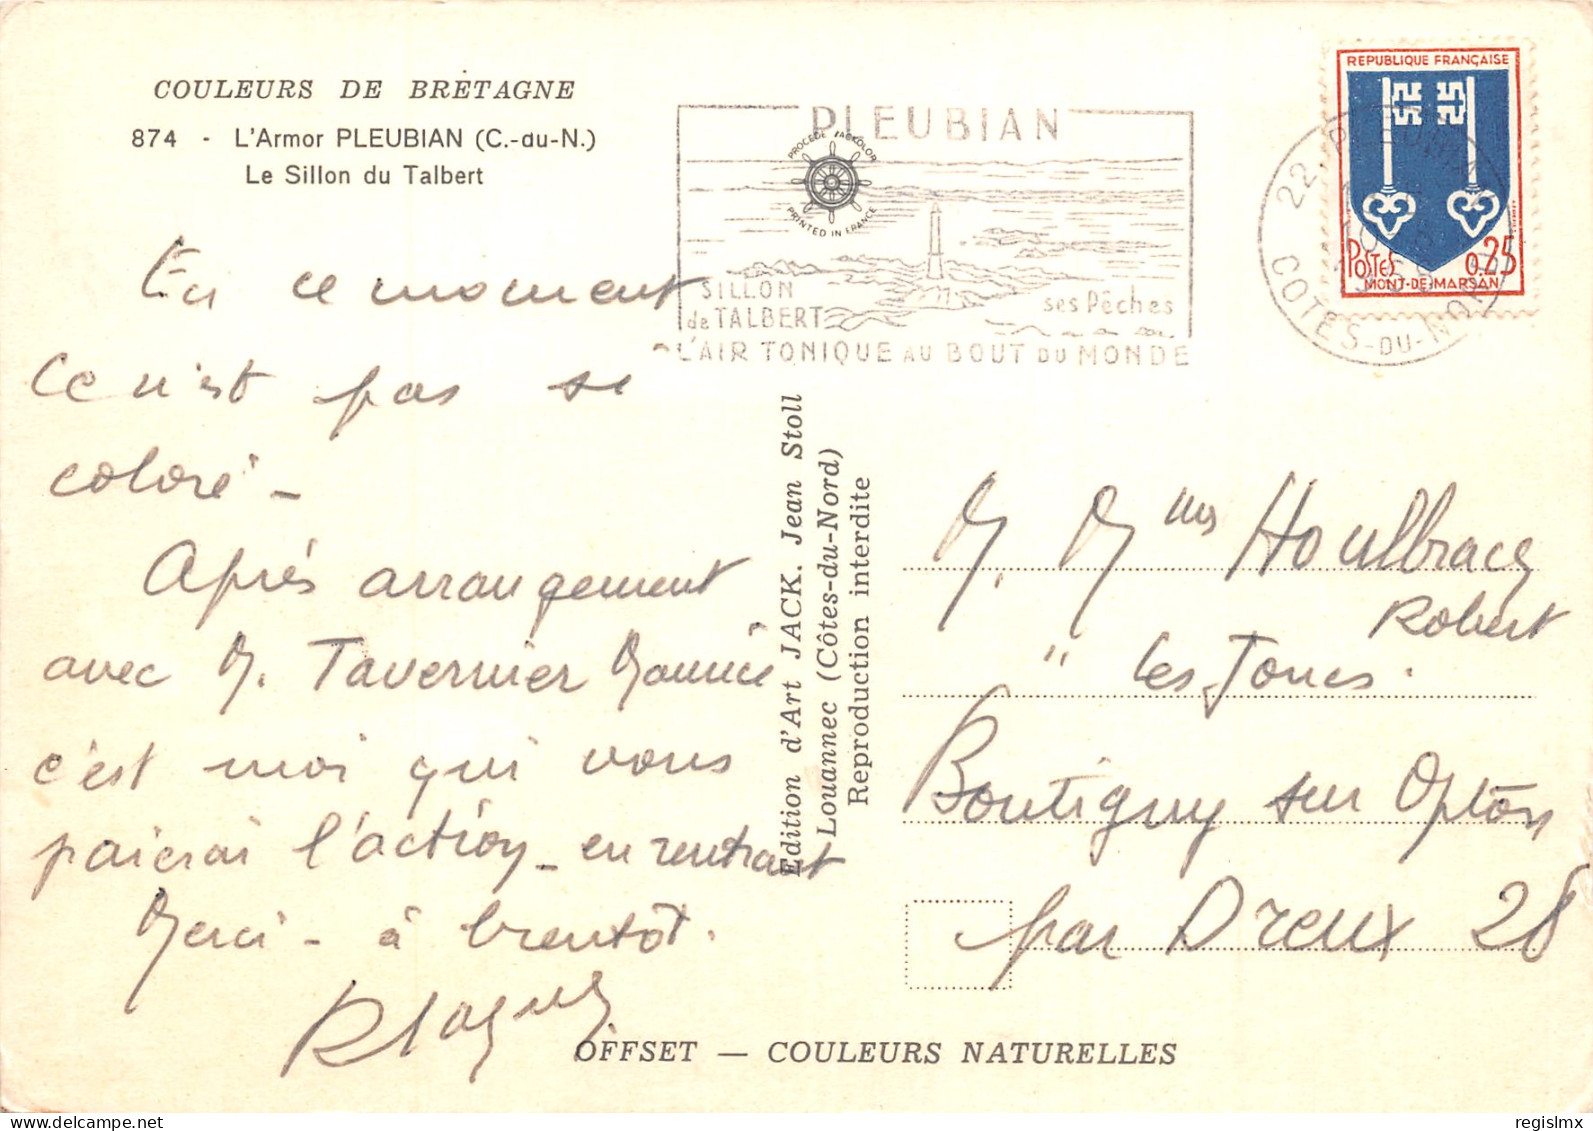 COULEURS DE BRETAGNE
874 - L'Armor PLEUBIAN (C.-du-N.)
Le Sillon du Talbert
PLEUBIAN
PROCEDE JACKOLOR
PRINTED IN FRANCE
SILLON
de TALBERT
ses Pêches
L'AIR TONIQUE AU BOUT DU MONDE
22. PLEUBIAN
COTES-DU-NORD
REPUBLIQUE FRANÇAISE
POSTES 0.25
MONT-DE-MARSAN
En ce moment
Ce n'est pas si
coloré -
Après arrangement
avec M. Tavernier Maurice
c'est moi qui vous
paierai l'action - en rentrant
Merci - à bientôt.
Edition d'Art JACK. Jean Stoll
Louannec (Côtes-du-Nord)
Reproduction interdite
M. Mme Houlbracq
Robert
" les Joncs.
Boutigny sur Opton
par Dreux 28
OFFSET — COULEURS NATURELLES
regislmx